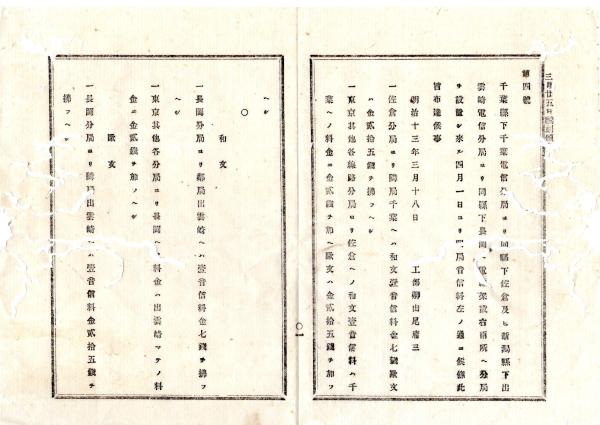 三月廿五日
第四號
千葉縣下千葉電信分局ヨリ同縣下佐倉及ヒ新潟縣下出
雲崎電信分局ヨリ同縣下長岡ヘ電線架設右兩所ヘ分局
ヲ設置シ來ル四月一日ヨリ開局音信料左ノ通候條此
旨布達候事
明治十三年三月十八日 工部卿山尾庸三
一佐倉分局ヨリ隣局千葉ヘハ和文壹音信料金七錢歐文
ハ金貳拾五錢ヲ拂フヘシ
一東京其他各線路分局ヨリ佐倉ヘノ和文壹音信料ハ千
葉ヘノ料金ニ金貳錢ヲ加ヘ歐文ハ金貳拾五錢ヲ加フ
ヘシ
〇 和文
一長岡分局ヨリ鄰局出雲崎ヘハ壹音信料金七錢ヲ拂フ
ヘシ
一東京其他各分局ヨリ長岡ヘノ料金ハ出雲崎マテノ料
金ニ金貳錢ヲ加フヘシ
歐文
一長岡分局ヨリ隣局出雲崎ヘハ壹音信料金貳拾五錢ヲ
拂フヘシ
〇一